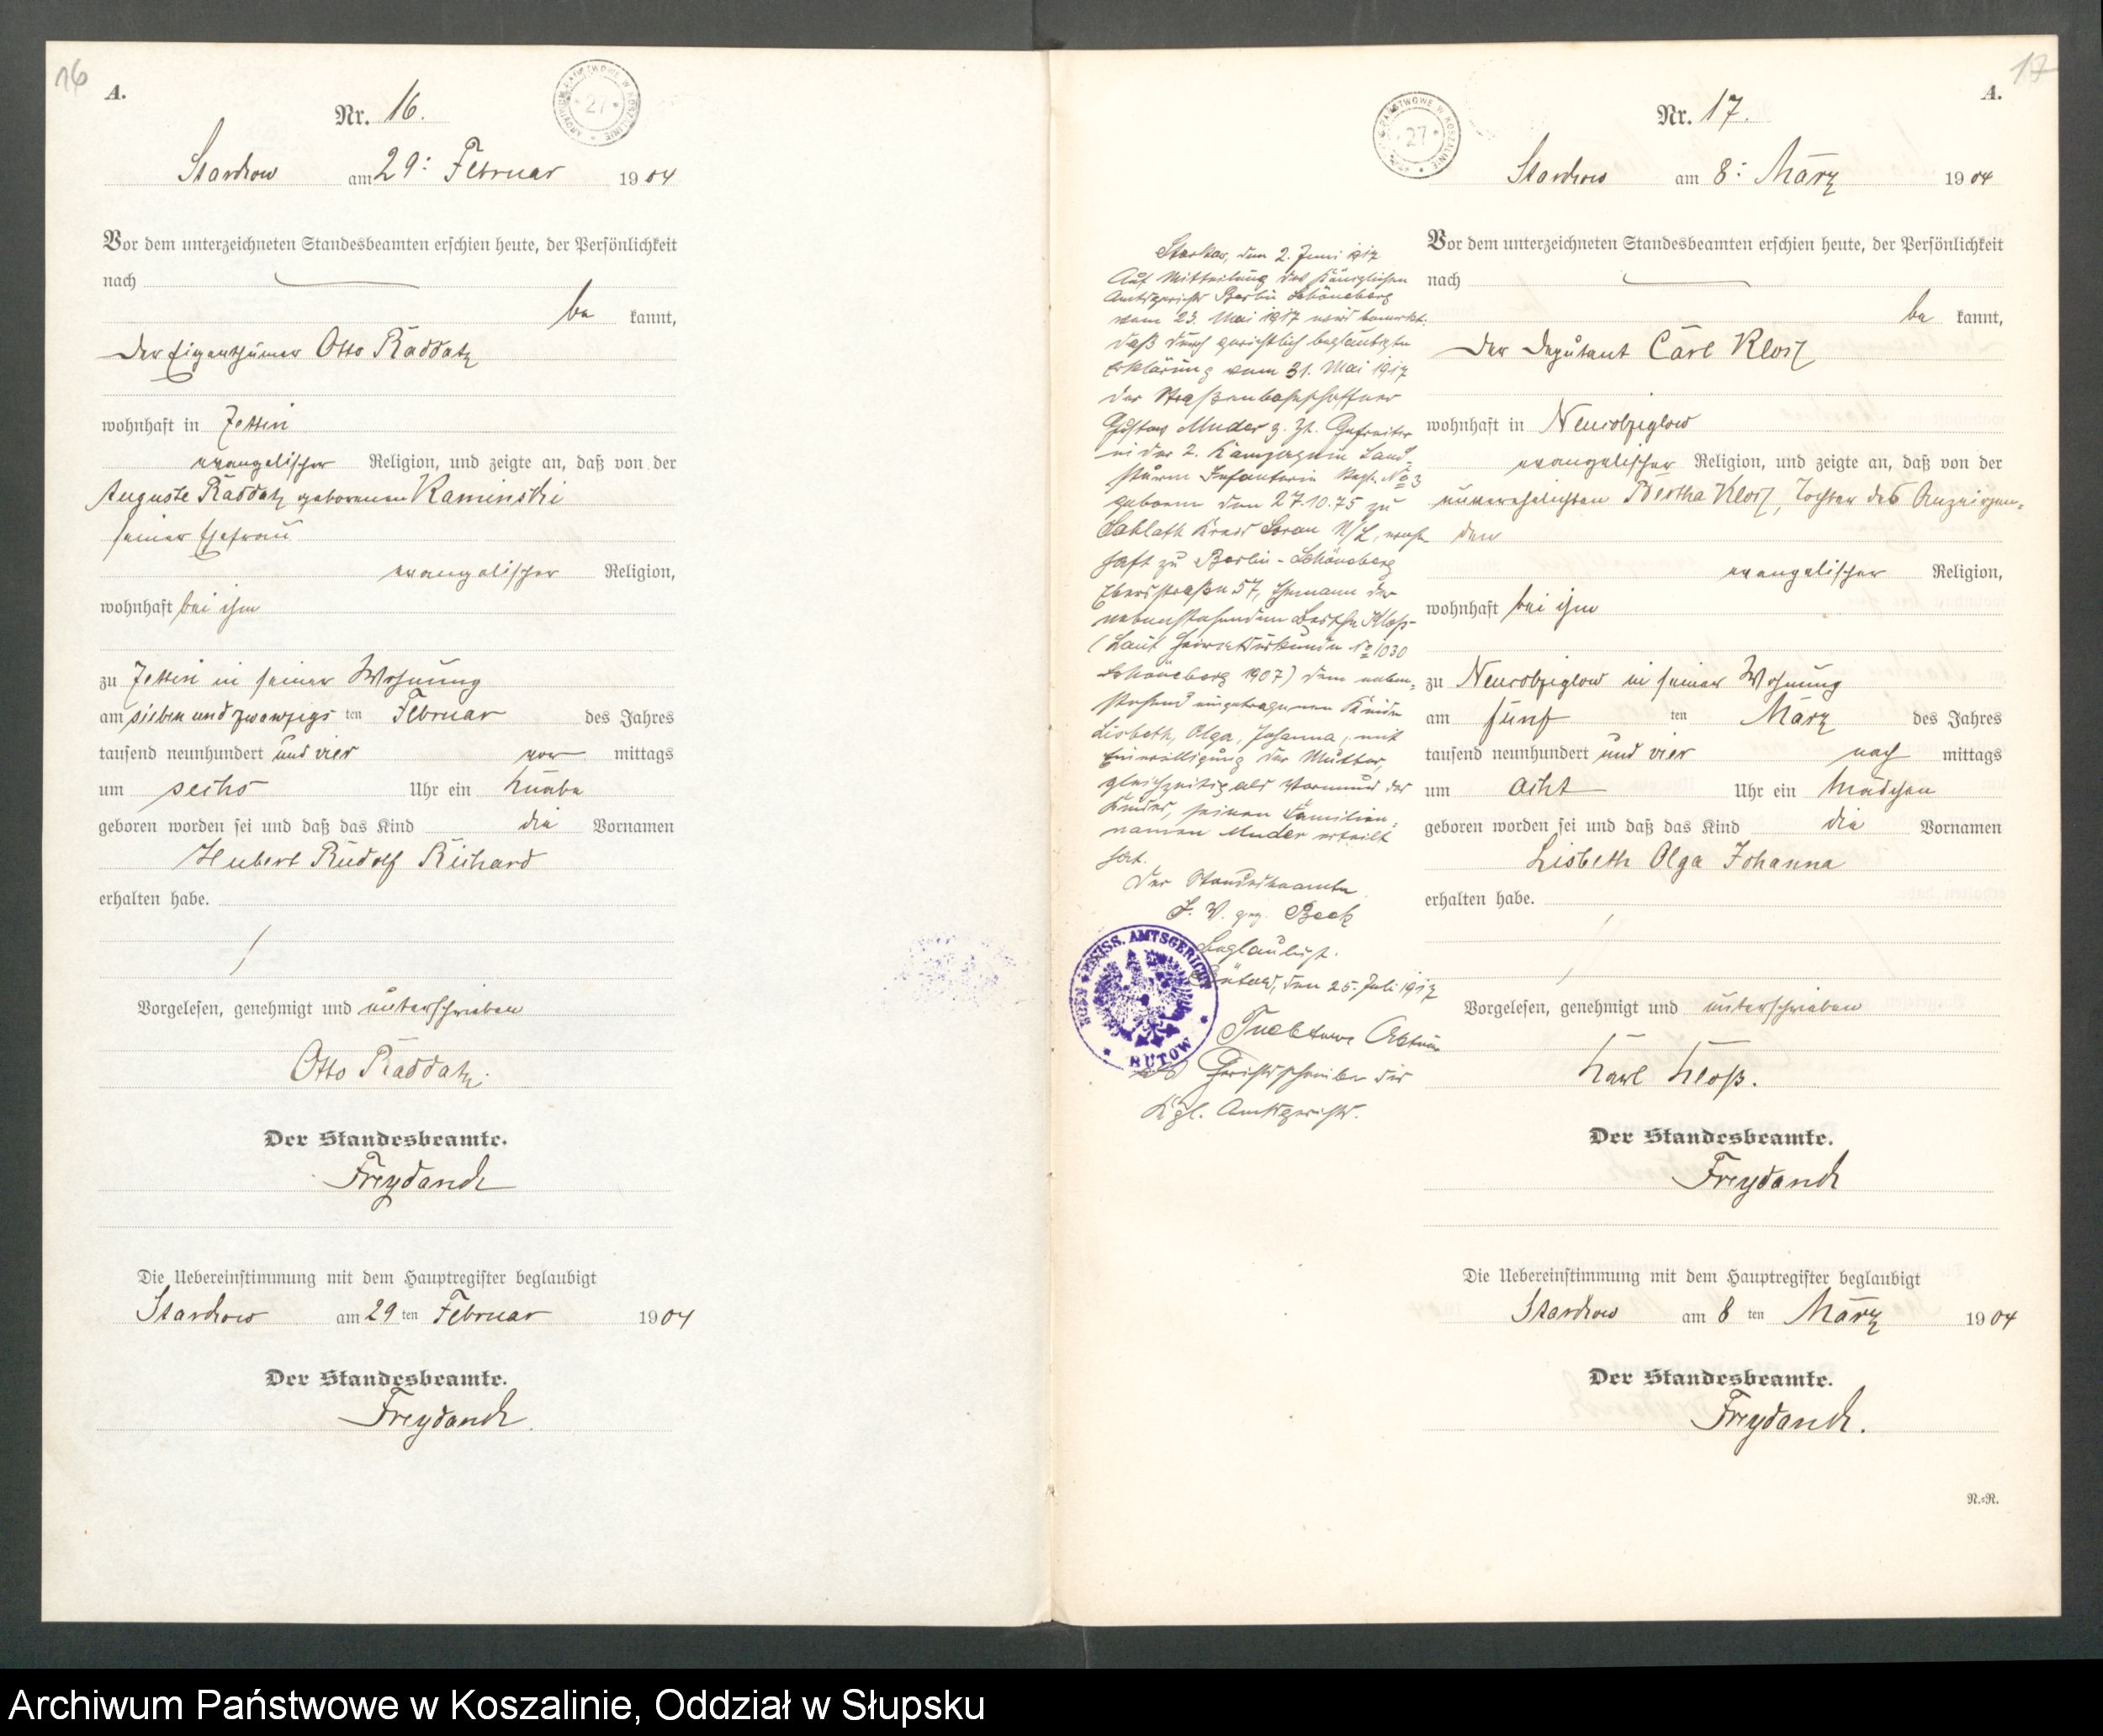 16
A.
ARCHIWUM PAŃSTWOWE W KOSZALINIE
27
Nr. 16.
Starckow am 29: Februar 1904
Vor dem unterzeichneten Standesbeamten erschien heute, der Persönlichkeit
nach
be kannt,
Der Eigenthümer Otto Raddatz
wohnhaft in Jettin
evangelischer Religion, und zeigte an, daß von der
Auguste Raddatz geborenen Kaminski
seiner Ehefrau
evangelischer Religion,
wohnhaft bei ihm
zu Jettin in seiner Wohnung
am sieben und zwanzigs ten Februar des Jahres
tausend neunhundert und vier vor mittags
um sechs Uhr ein Knabe
geboren worden sei und daß das Kind die Vornamen
Hubert Rudolf Richard
erhalten habe.
Vorgelesen, genehmigt und unterschrieben
Otto Raddatz.
Der Standesbeamte.
Freydanck
Die Uebereinstimmung mit dem Hauptregister beglaubigt
Starckow am 29 ten Februar 1904
Der Standesbeamte.
Freydanck.
17
A.
PAŃSTWOWE W KOSZALINIE
27
Nr. 17.
Starckow am 8: März 1904
Vor dem unterzeichneten Standesbeamten erschien heute, der Persönlichkeit
nach
be kannt,
Der Deputant Carl Klosz
wohnhaft in Neucolziglow
evangelischer Religion, und zeigte an, daß von der
unverehelichten Bertha Klosz, Tochter des Anzeigen-
den
evangelischer Religion,
wohnhaft bei ihm
zu Neucolziglow in seiner Wohnung
am fünf ten März des Jahres
tausend neunhundert und vier nach mittags
um acht Uhr ein Mädchen
geboren worden sei und daß das Kind die Vornamen
Lisbeth Olga Johanna
erhalten habe.
Vorgelesen, genehmigt und unterschrieben
Karl Kloß.
Der Standesbeamte.
Freydanck
Die Uebereinstimmung mit dem Hauptregister beglaubigt
Starckow am 8 ten März 1904
Der Standesbeamte.
Freydanck.
N.=R.
Starkow, den 2. Juni 1917
Auf Mitteilung des Königlichen
Amtsgerichts Berlin Schöneberg
vom 23. Mai 1917 wird bemerkt:
daß durch gerichtlich beglaubigte
Erklärung vom 31. Mai 1917
der Straßenbahnschaffner
Gustav Muder z. Zt. Gefreiter
in der 2. Kompagnie Land-
sturm Infanterie Regt. No 3
geboren den 27.10.75 zu
Sablath Kreis Sorau N/L, wohn-
haft zu Berlin-Schöneberg
Ebersstraße 57, Ehemann der
nebenstehenden Bertha Kloß
(Laut Heiratsurkunde No 1030
Schöneberg 1907) dem neben-
stehend eingetragenen Kinde
Lisbeth, Olga, Johanna, mit
Einwilligung der Mutter,
gleichzeitig als Vormund des
Kindes, seinen Familien-
namen Muder erteilt
hat.
Der Standesbeamte
I. V. gez. Beck
Beglaubigt.
Bütow, den 25. Juli 1917
Aktuar
als Gerichtsschreiber des
Kgl. Amtsgerichts.
KÖNIGL. PREUSS. AMTSGERICHT
BÜTOW
Archiwum Państwowe w Koszalinie, Oddział w Słupsku